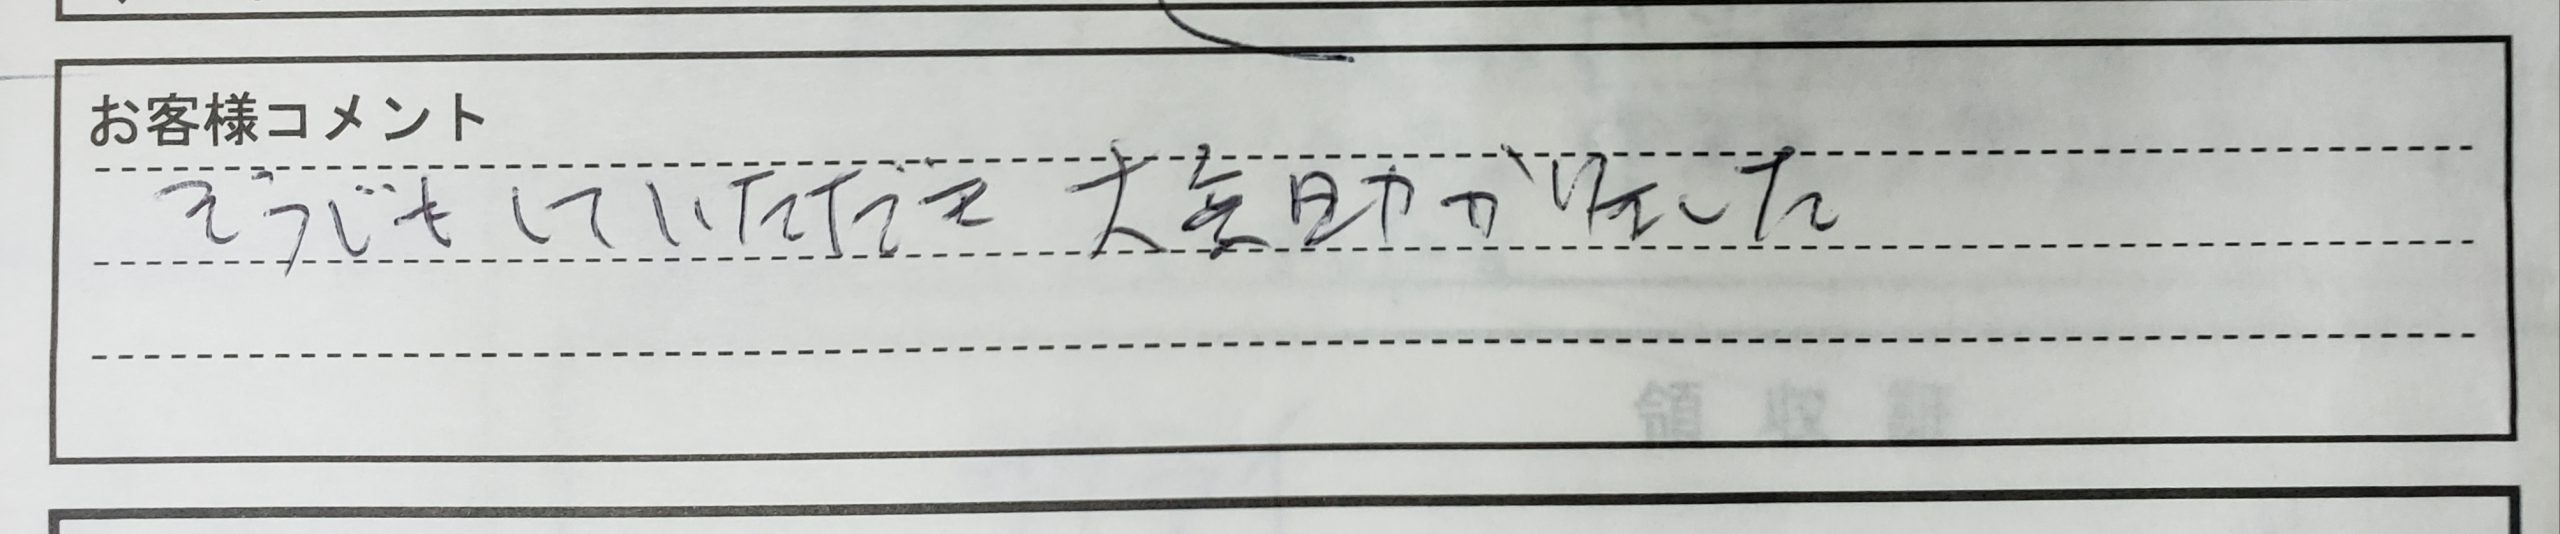 お客様コメント
そうじもしていただき 大変助かりました
領収証